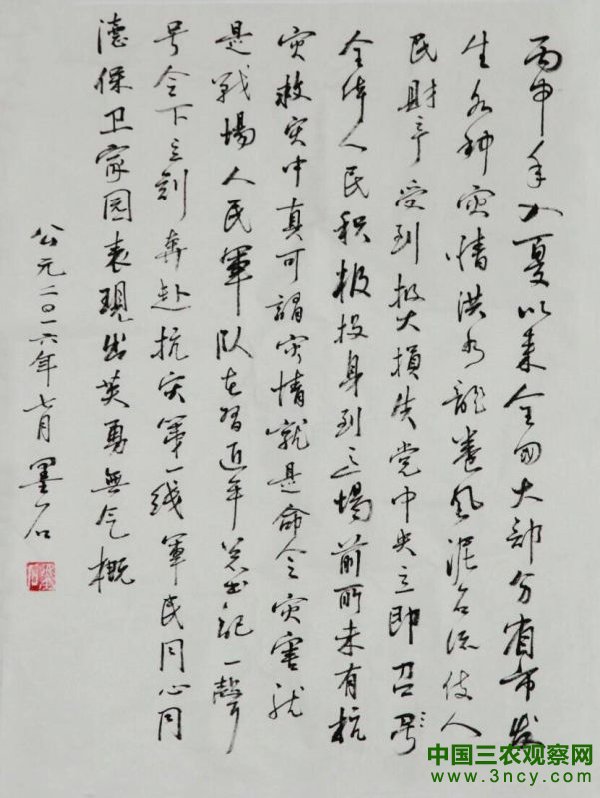 丙申年入夏以来全国大部分省市发
生各种灾情洪水龙卷风泥石流使人
民财产受到极大損失党中央立即召号
全体人民积极投身到这場前所未有抗
灾救灾中真可謂灾情就是命令灾害就
是戰場人民軍队在習近平总书記一聲
号令下立刻奔赴抗灾第一线軍民同心同
德保卫家园表現出英勇無气概
公元二〇一六年七月墨石
中国三农观察网
www.3ncy.com